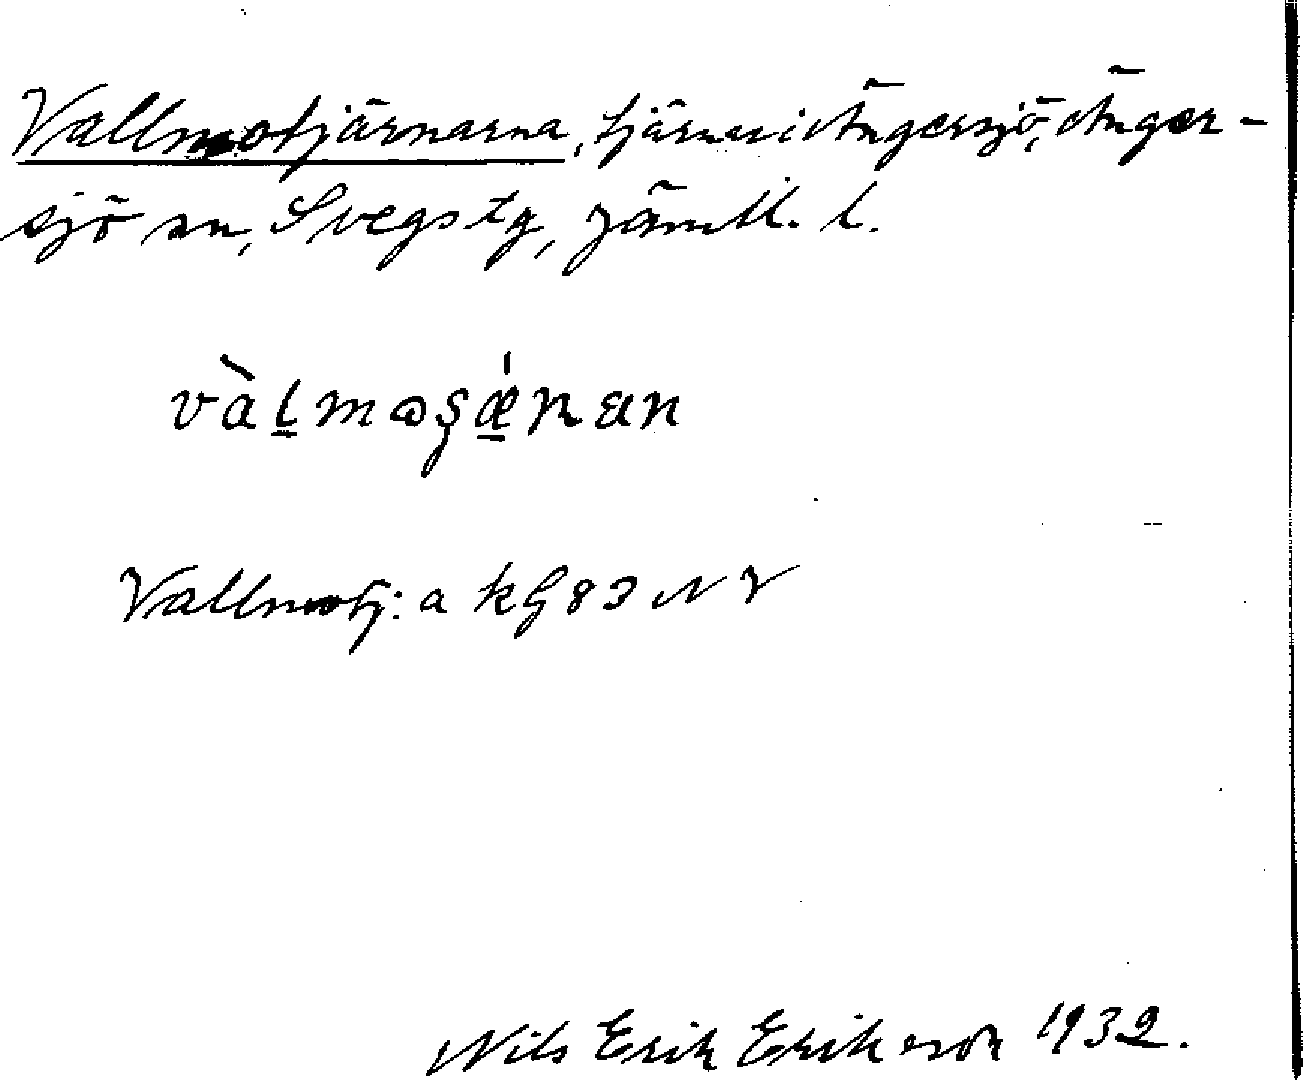 Vallmotjärnarna, tjärnar i Ängersjö, Änger-
sjö sn, Svegs tg, Jämtl. l.
vàl̲mꙍʂǽ̲ɴan
Vallmotj: a kG 83 NV
Nils Erik Erikson 1932.